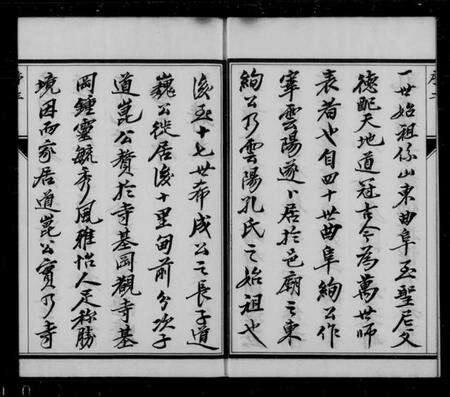 一世始祖係山東曲阜至聖尼父
德配天地道冠古今為萬世師
表者也自四十世曲阜絢公作
宰雲陽遂卜居於邑廟之東
絢公乃雲陽孔氏之始祖也
後五十七世希成公之長子道
巍公徙居後十里甸前分次子
道崑公贅於寺基岡觀寺基
岡鍾靈毓秀風雅怡人足稱勝
境因而家居道崑公實乃寺